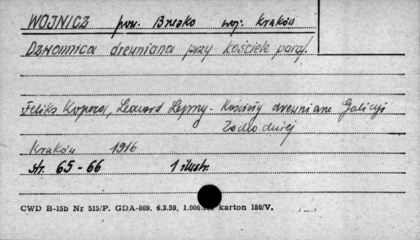 WOJNICZ pow. Brzesko woj. Kraków
Dzwonnica drewniana przy kościele paraf.
Feliks Kopera, Leonard Lepszy. Kościoły drewniane Galicyi
Zachodniej
Kraków 1916
str. 65-66 1 ilustr.
CWD B-15b Nr 515/P. GDA-809. 6.3.59, 1.000.000 karton 180/V.